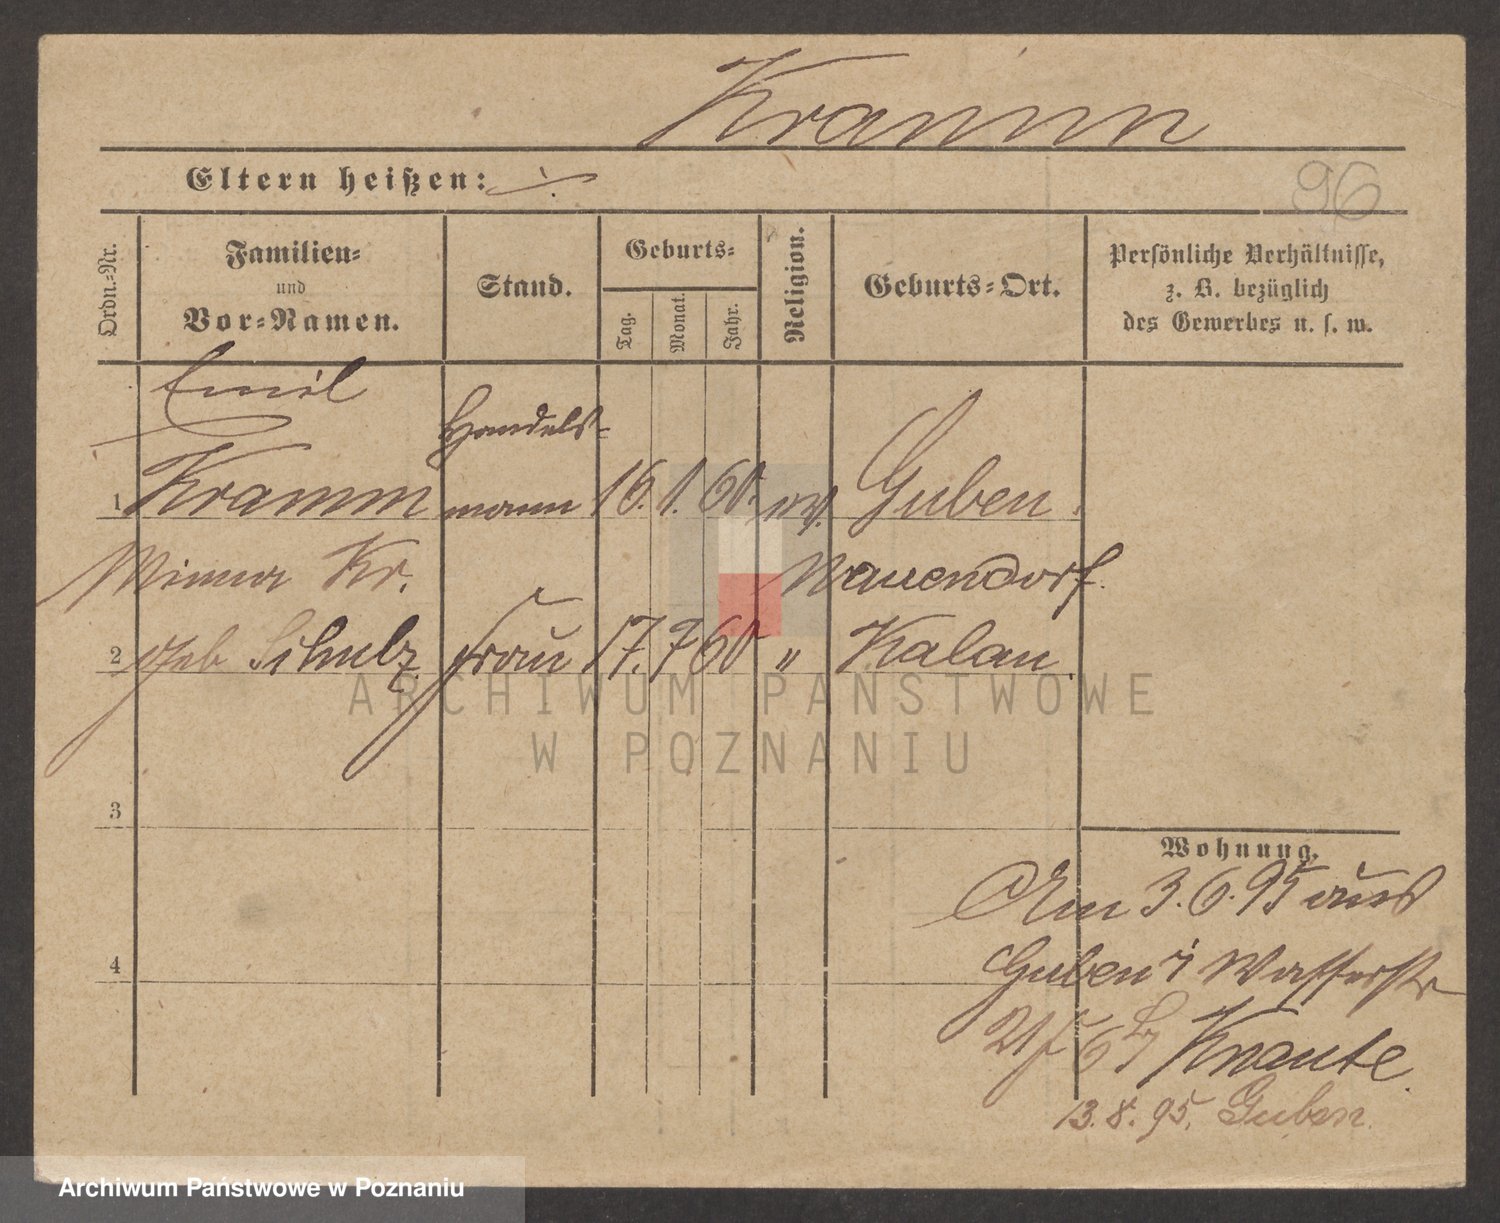 Kramm
Eltern heißen: ./.
96
Ordn.-Nr.
Familien-
und
Vor-Namen.
Stand.
Geburts-
Tag.
Monat.
Jahr.
Religion.
Geburts-Ort.
Persönliche Verhältnisse,
z. B. bezüglich
des Gewerbes u. s. w.
Emil
Handels-
1 Kramm mann 16. 1. 60. ev. Guben.
Minna Kr. Nauendorf.
2 geb Schulz Frau 17. 7 60 " Kalau.
ARCHIWUM PAŃSTWOWE
W POZNANIU
3
Wohnung.
Am 3. 6. 95 aus
4
Guben i Wasserstr
Krante.
13. 8. 95. Guben.
Archiwum Państwowe w Poznaniu